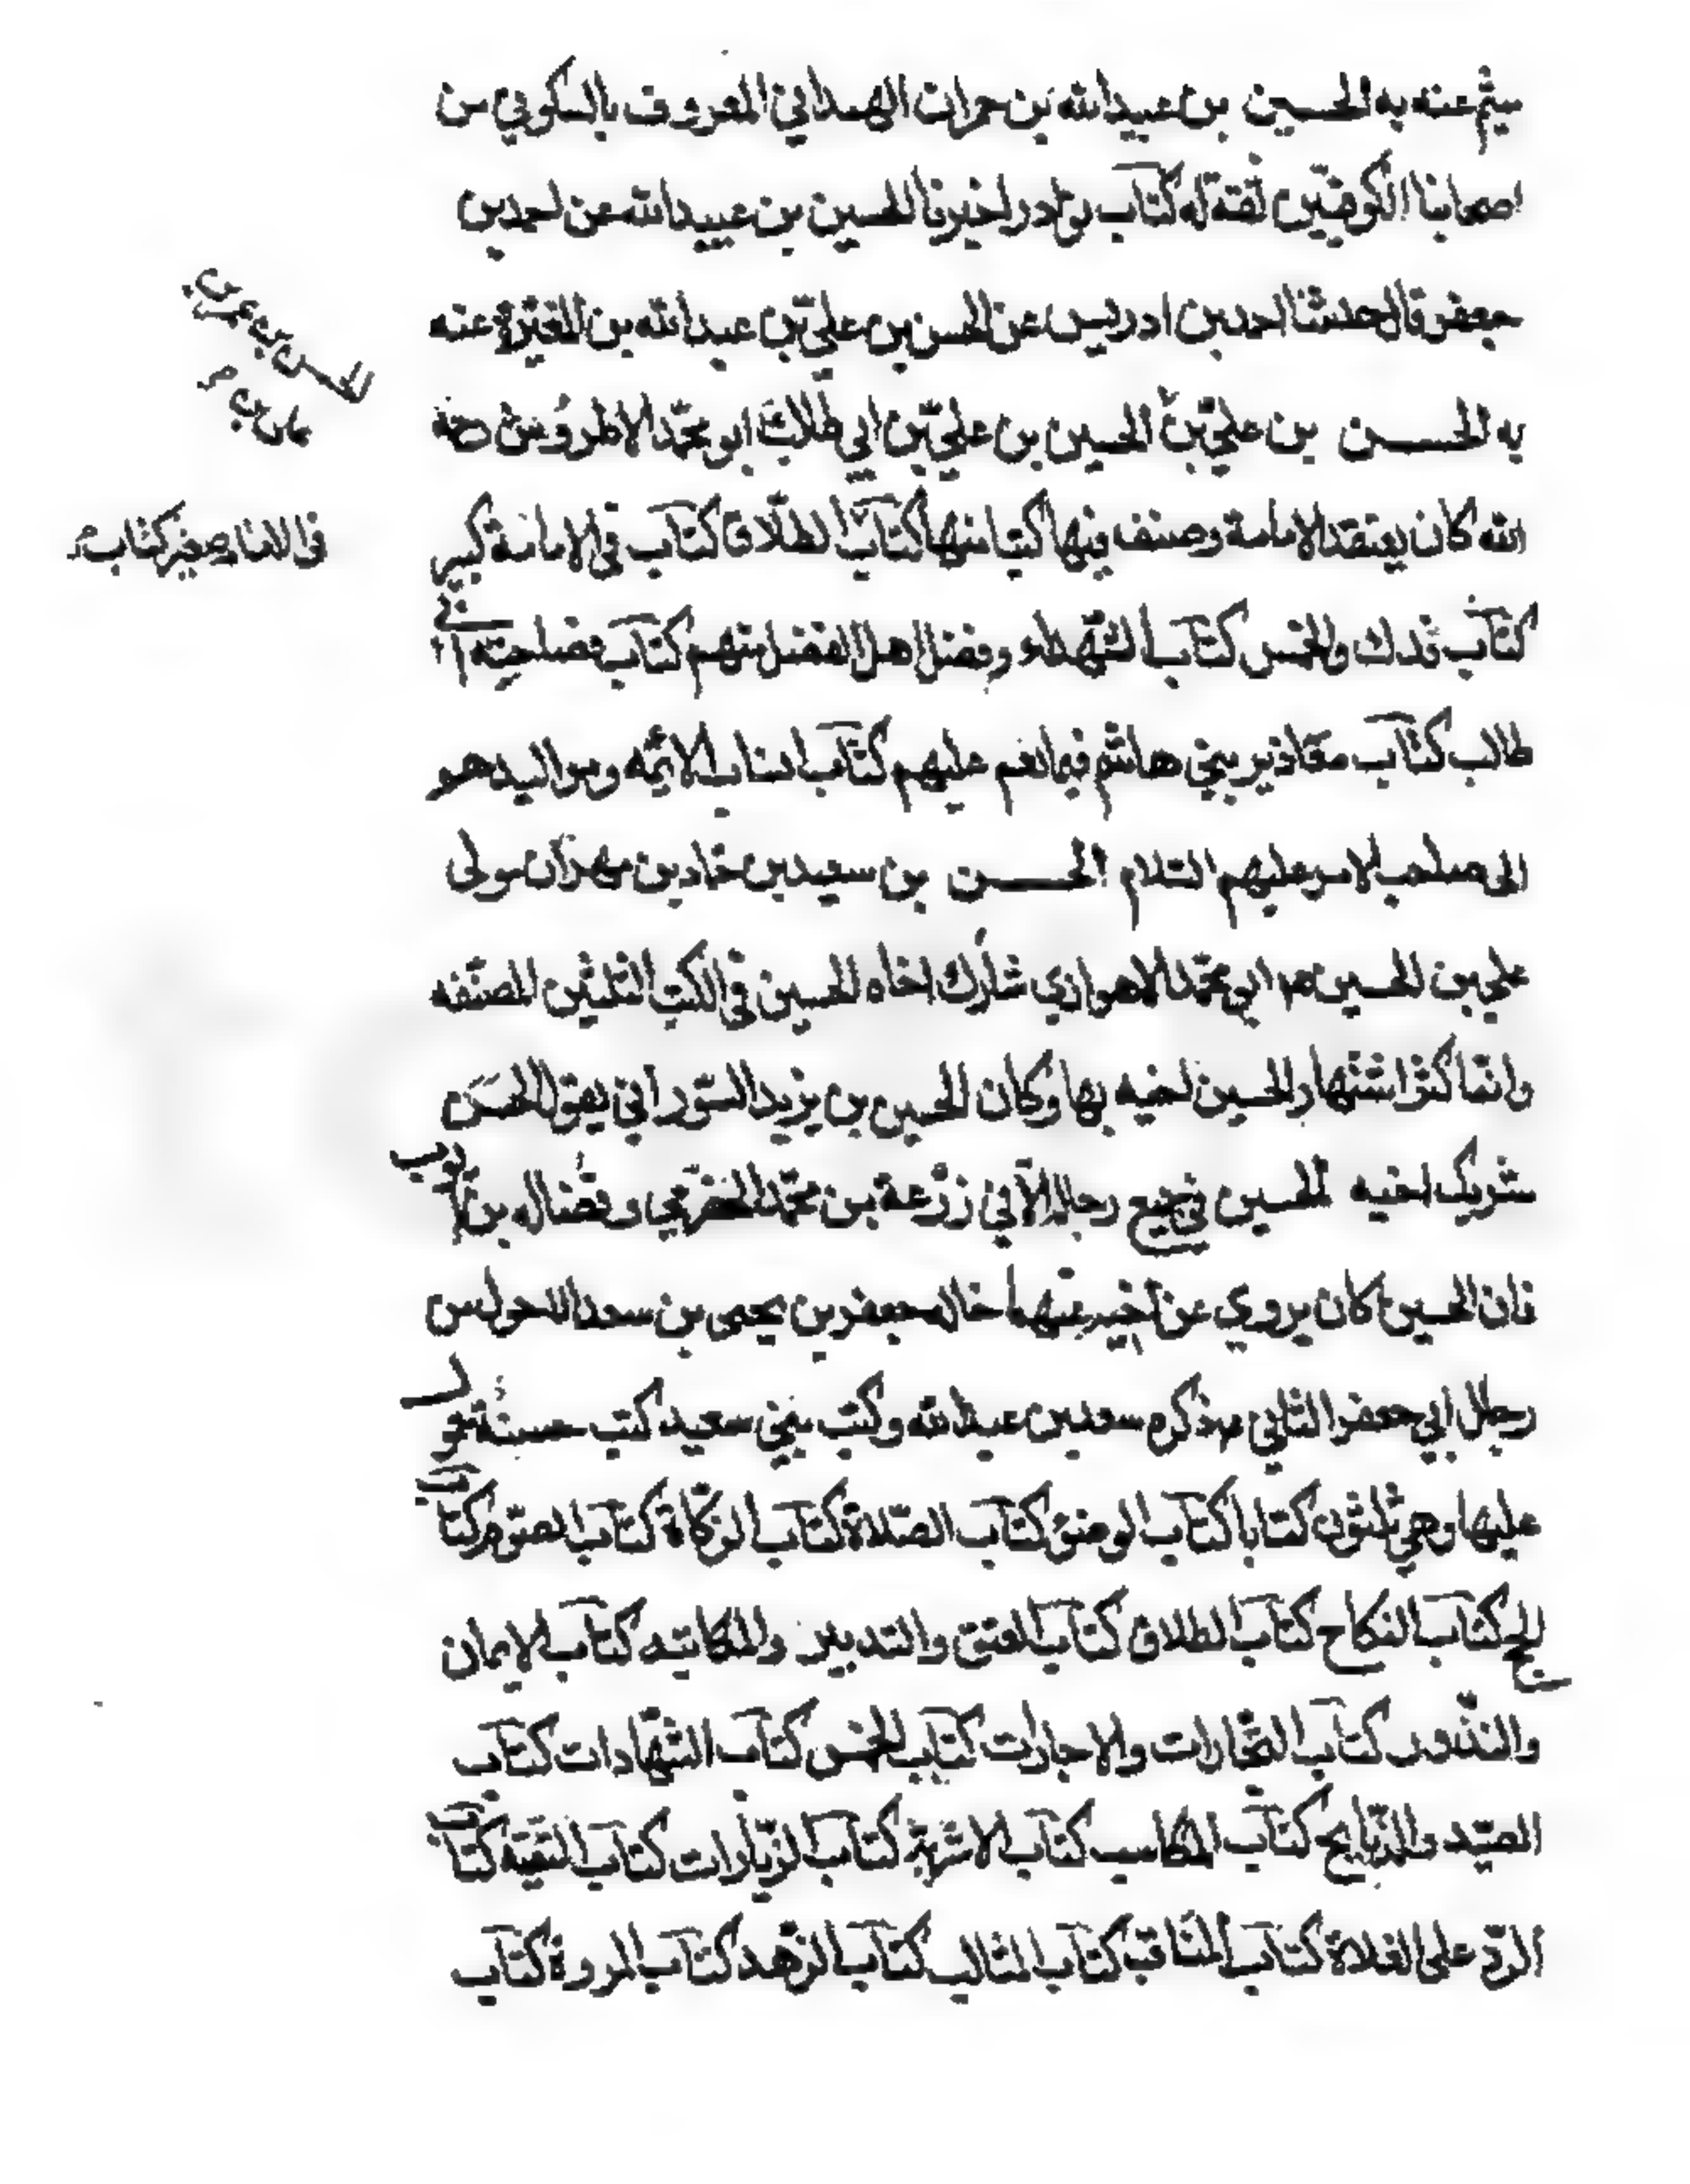 ميثم عنه به الحسين بن عبيدالله بن حمران الهمداني المعروف بالسكوني من
اصحابنا الكوفيّين ثقة له كتاب نوادر اخبرنا الحسين بن عبيدالله عن احمد بن
جعفر قال حدثنا احمد بن ادريس عن الحسن بن عليّ بن عبدالله بن المغيرة عنه
به الحسن بن عليّ بن الحسين بن عليّ بن ابي طالب ابو محمّد الاطروش رحمة
الله كان يعتقد الامامة وصنف فيها كتبا منها كتاب الطلاق كتاب في الامامة كبير
كتاب فدك والخمس كتاب الشهداء وفضل اهل الفضل منهم كتاب فصاحة ابي
طالب كتاب معاذير بني هاشم فيما نقم عليهم كتاب انساب الائمه ومواليدهم
الى صاحب الامر عليهم السّلام الحسن بن سعيد بن حماد بن مهران مولى
علي بن الحسين عم ابو محمّد الاهوازي شارك اخاه الحسين في الكتب الثلثين المصنّفه
وانما كثر اشتهار الحسين اخيه بها وكان الحسين بن يزيد السّوراني يقول الحسن
شريك اخيه الحسين في جميع رجاله الّا في زرعة بن محمّد الحضرمي وفضاله بن ايوب
فان الحسين كان يروي عن اخيه عنهما خاله جعفر بن يحيى بن سعد الاحول من
رجال ابي جعفر الثاني ع ذكره سعد بن عبدالله وكتب بني سعيد كتب حسنة معول
عليها وهي ثلثون كتابا كتاب الوضوء كتاب الصّلاة كتاب الزكاة كتاب الصّوم كتاب
الحج كتاب النكاح كتاب الطلاق كتاب العتق والتدبير والمكاتبه كتاب الايمان
والنذور كتاب التجارات والاجارات كتاب الخمس كتاب الشّهادات كتاب
الصّيد والذبايح كتاب المكاسب كتاب الاشربة كتاب الزّيارات كتاب التقيّه كتاب
الردّ على الغلاة كتاب المناقب كتاب المثالب كتاب الزّهد كتاب المروة كتاب
الحسن بن عمر بن
علي بن
في الامامة صغير كتاب